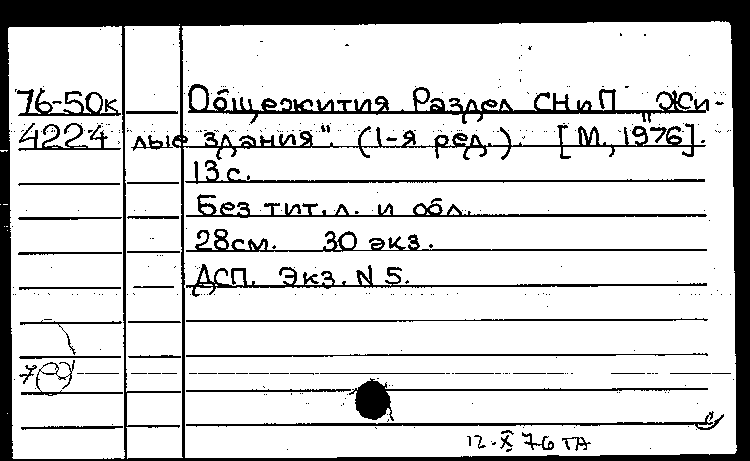 76-50к Общежития. Раздел СНиП "Жи-
4224 лые здания". (1-я ред.). [М., 1976].
13 с.
Без тит. л. и обл.
28 см. 30 экз.
ДСП. Экз. N 5.
12-X 76 ТА